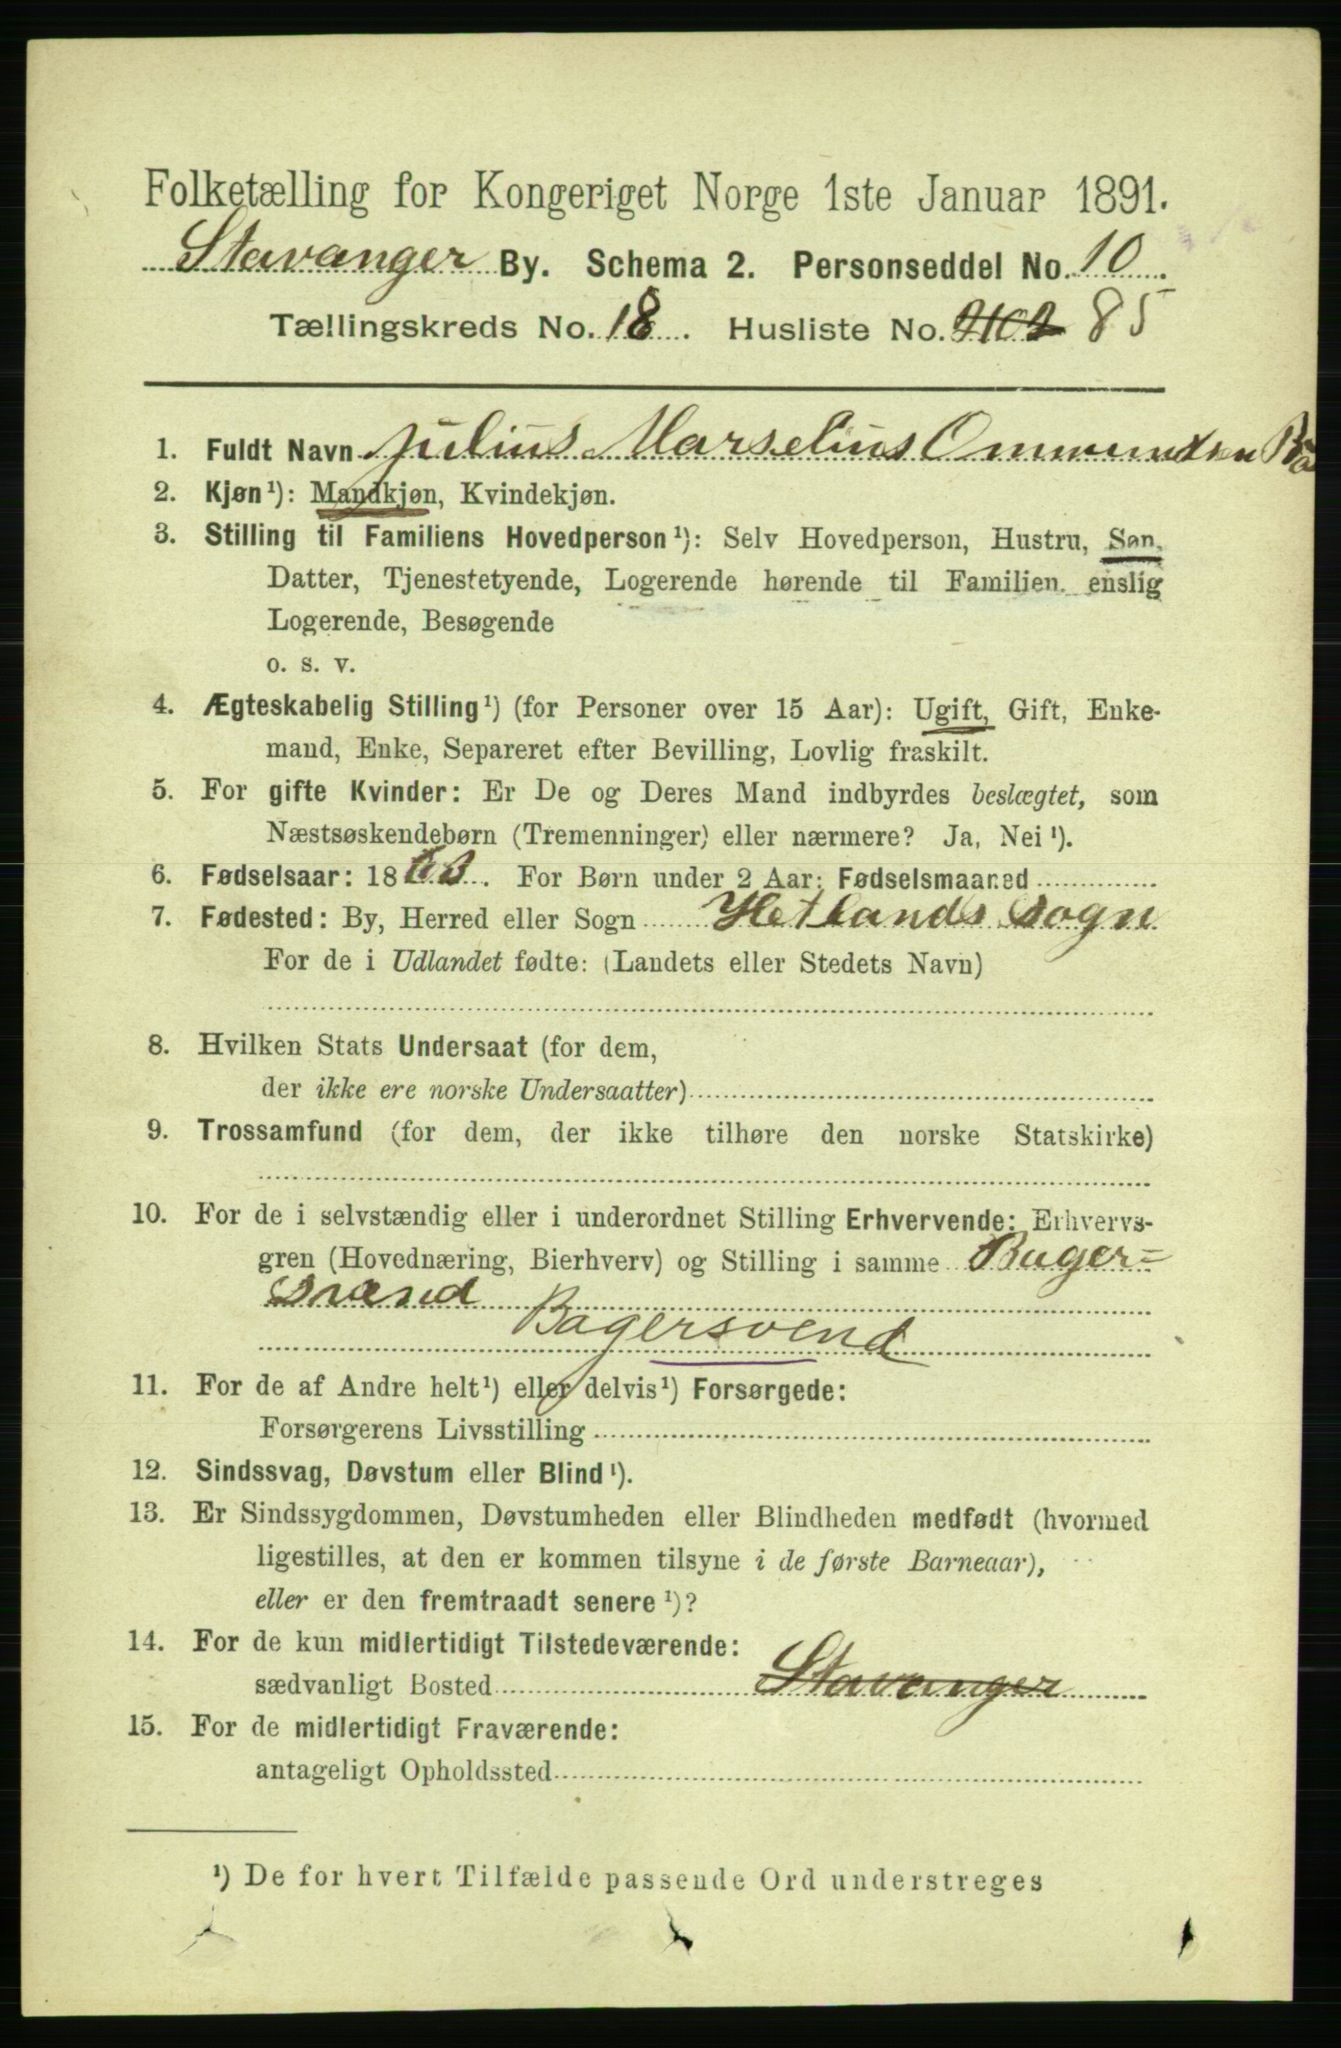 Folketælling for Kongeriget Norge 1ste Januar 1891.
Stavanger By. Schema 2. Personseddel No. 10.
Tællingskreds No. 18. Husliste No. 2102 85
1. Fuldt Navn Julius Marselius Ommundsen
2. Kjøn¹): Mandkjøn, Kvindekjøn.
3. Stilling til Familiens Hovedperson¹): Selv Hovedperson, Hustru, Søn,
Datter, Tjenestetyende, Logerende hørende til Familien, enslig
Logerende, Besøgende
o. s. v.
4. Ægteskabelig Stilling¹) (for Personer over 15 Aar): Ugift, Gift, Enke-
mand, Enke, Separeret efter Bevilling, Lovlig fraskilt.
5. For gifte Kvinder: Er De og Deres Mand indbyrdes beslægtet, som
Næstsøskendebørn (Tremenninger) eller nærmere? Ja, Nei¹).
6. Fødselsaar: 1863. For Børn under 2 Aar: Fødselsmaaned
7. Fødested: By, Herred eller Sogn Hetlands Sogn
For de i Udlandet fødte: (Landets eller Stedets Navn)
8. Hvilken Stats Undersaat (for dem,
der ikke ere norske Undersaatter)
9. Trossamfund (for dem, der ikke tilhøre den norske Statskirke)
10. For de i selvstændig eller i underordnet Stilling Erhvervende: Erhvervs-
gren (Hovednæring, Bierhverv) og Stilling i samme Bager=
Bagersvend
11. For de af Andre helt¹) eller delvis¹) Forsørgede:
Forsørgerens Livsstilling
12. Sindssvag, Døvstum eller Blind¹).
13. Er Sindssygdommen, Døvstumheden eller Blindheden medfødt (hvormed
ligestilles, at den er kommen tilsyne i de første Barneaar),
eller er den fremtraadt senere¹)?
14. For de kun midlertidigt Tilstedeværende:
sædvanligt Bosted Stavanger
15. For de midlertidigt Fraværende:
antageligt Opholdssted
¹) De for hvert Tilfælde passende Ord understreges